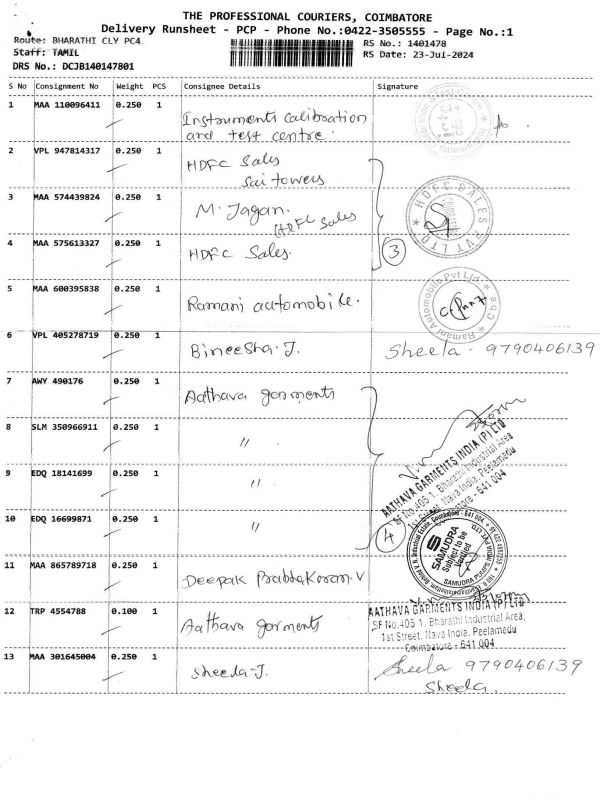 THE PROFESSIONAL COURIERS, COIMBATORE
Delivery Runsheet - PCP - Phone No.:0422-3505555 - Page No.:1
Route: BHARATHI CLY PC4
RS No.: 1401478
Staff: TAMIL
RS Date: 23-Jul-2024
DRS No.: DCJB140147801
S No Consignment No Weight PCS Consignee Details Signature
1 MAA 110096411 0.250 1 Instruments calibration
and test centre.
2 VPL 947814317 0.250 1 HDFC Sales
Sai towers
3 MAA 574439824 0.250 1 M. Jagan.
HDFC Sales
HDFC SALES PVT LTD
4 MAA 575613327 0.250 1 HDFC Sales. 3
5 MAA 600395838 0.250 1 Ramani automobile.
Ramani Automobile Pvt Ltd. Cbe
6 VPL 405278719 0.250 1 Bineesha.J. Sheela - 9790406139
7 AWY 490176 0.250 1 Aathava garments
8 SLM 350966911 0.250 1 "
AATHAVA GARMENTS INDIA (P) LTD
SF No.405 1, Bharathi Industrial Area
1st Street, Nava India, Peelamedu
Coimbatore - 641 004
9 EDQ 18141699 0.250 1 "
10 EDQ 16699871 0.250 1 " 4
SAMUDRA
Subject to be
Verified
SAMUDRA PUMPS INDIA PVT LTD
11 MAA 865789718 0.250 1 Deepak Prabhakaran.V
12 TRP 4554788 0.100 1 Aathava garments
AATHAVA GARMENTS INDIA (P) LTD
SF No.405 1, Bharathi Industrial Area,
1st Street, Nava India, Peelamedu
Coimbatore - 641 004
13 MAA 301645004 0.250 1 Sheela-J. Sheela 9790406139
Sheela.